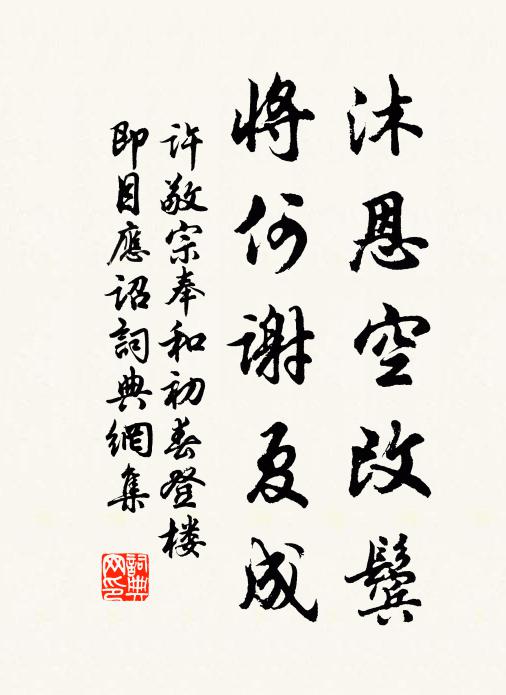 沐恩空改鬓
将何谢夏成
许敬宗奉和初春登楼
即目應诏詞典網集
詞典網印